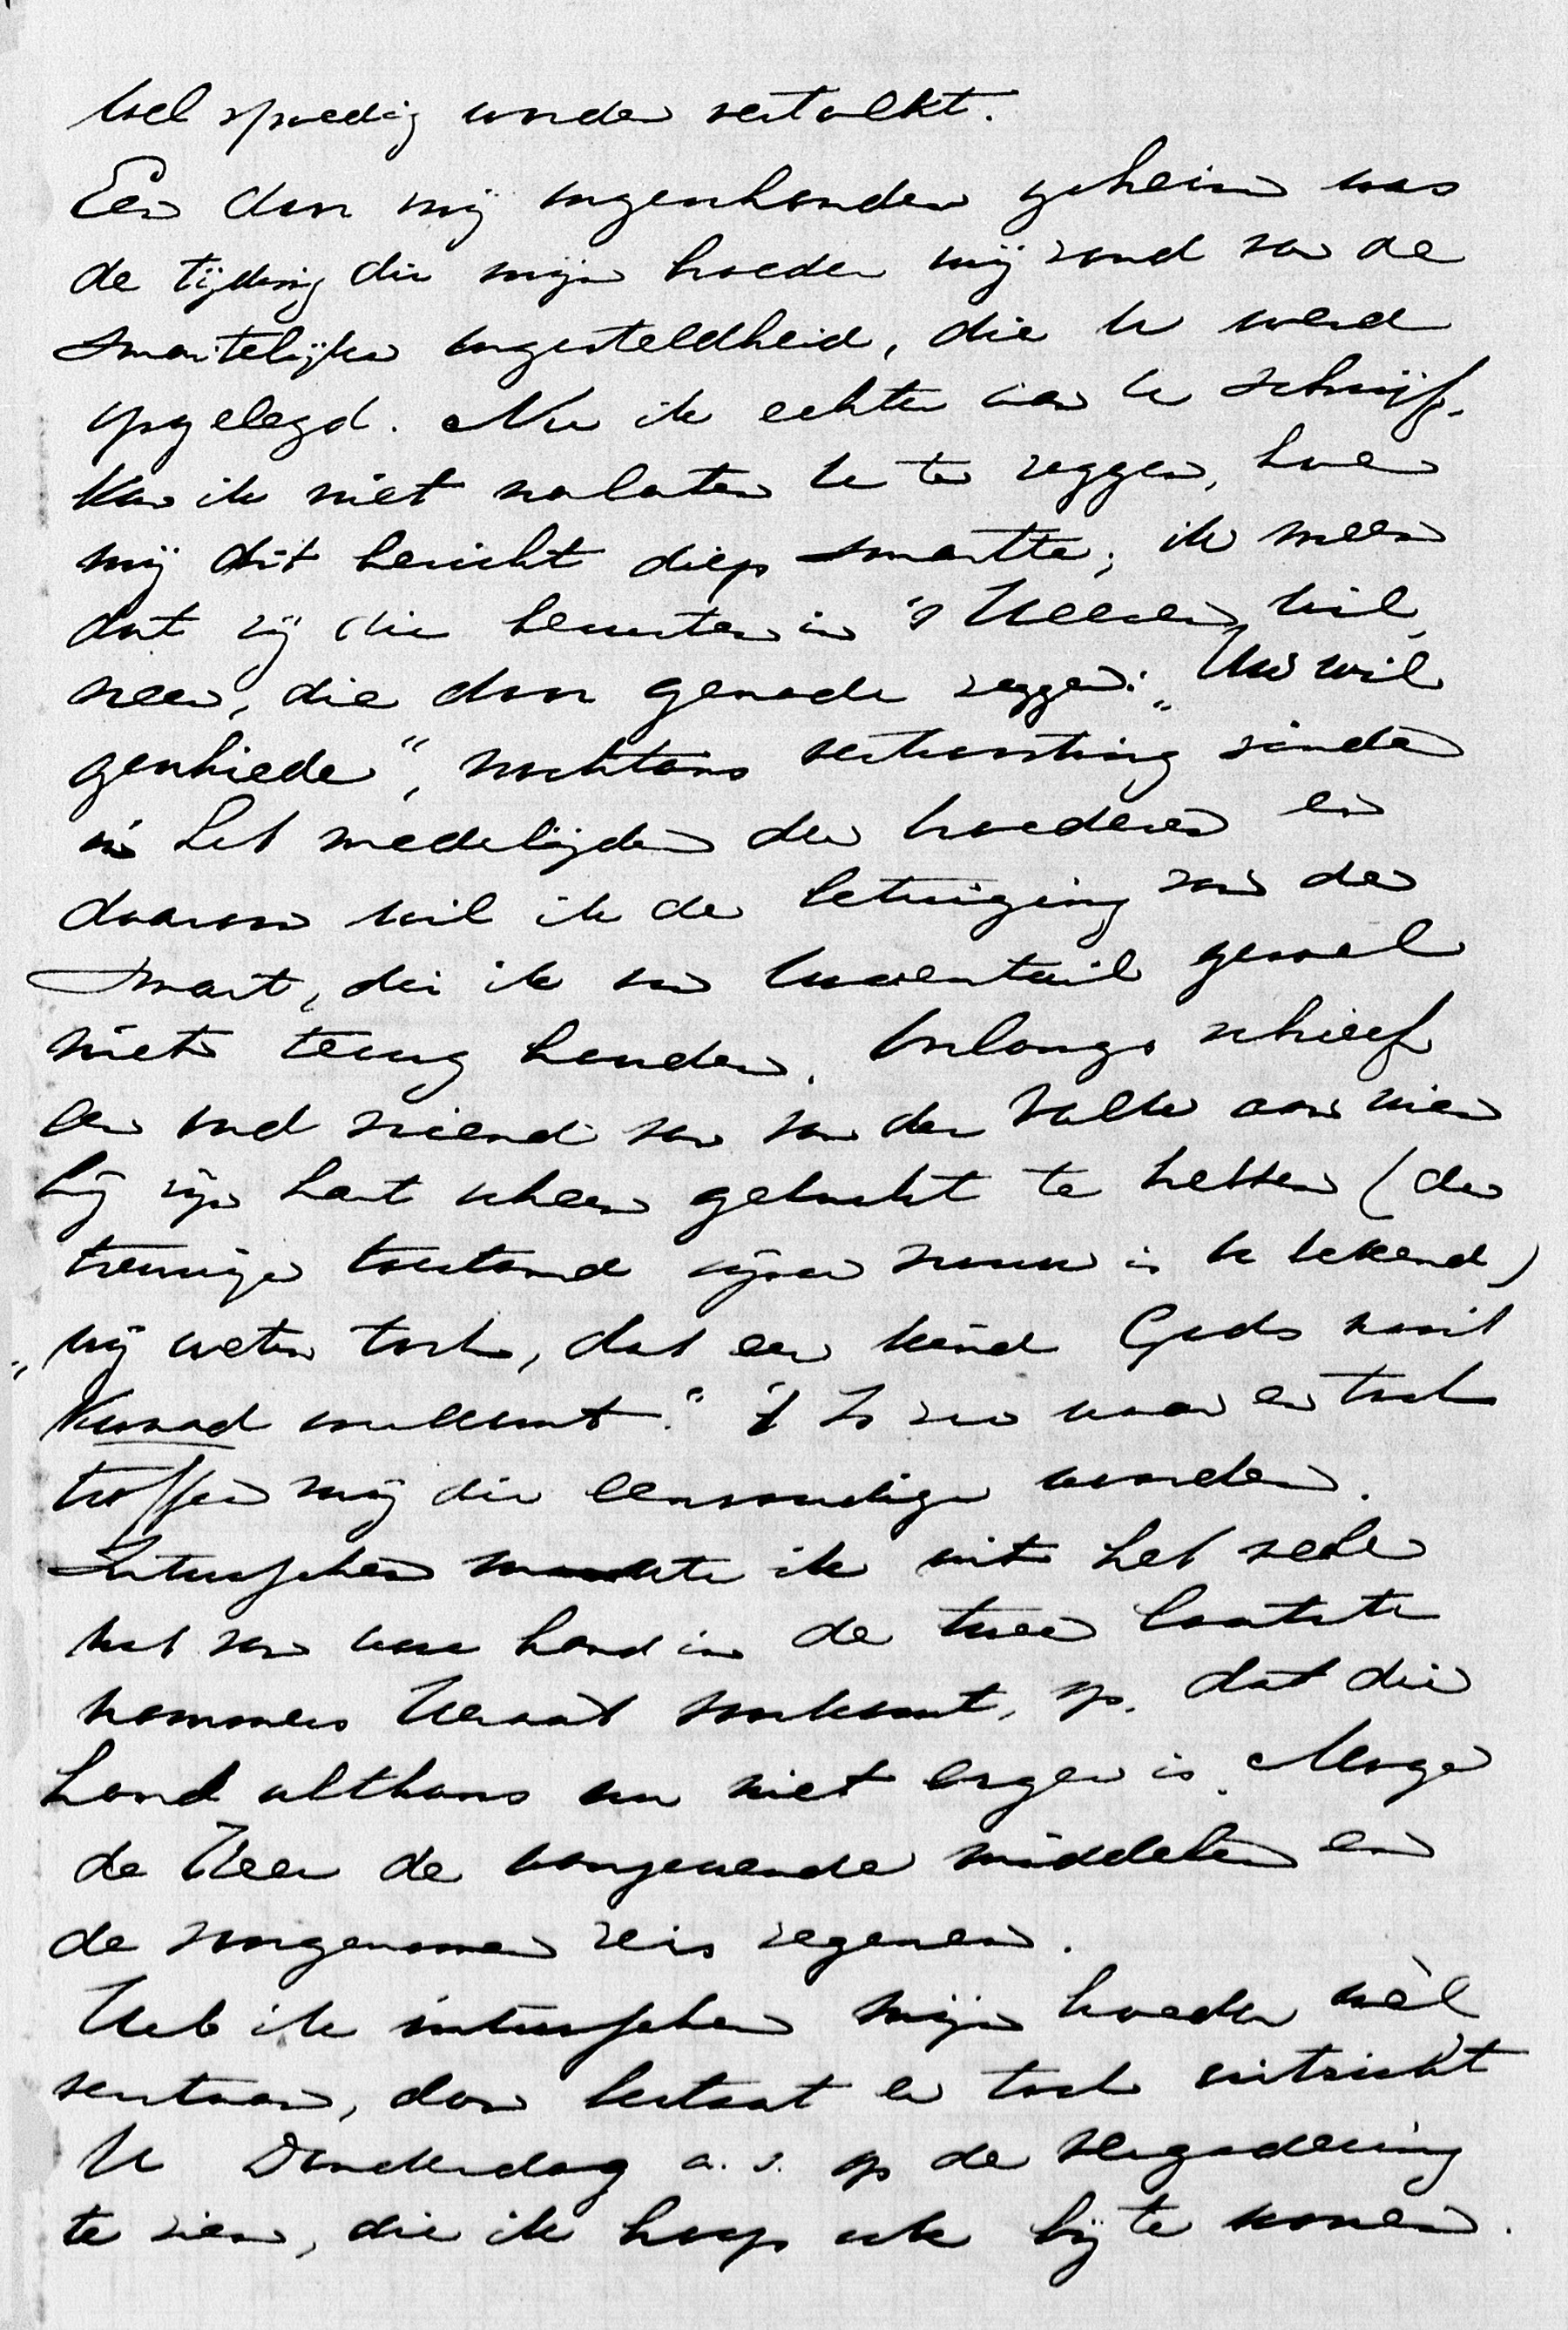 wel spoedig worden vertolkt.
Een door mij ongeschonden geheim was
de tijding die mijn broeder mij zond van de
smartelijke ongesteldheid, die U werd
opgelegd. Nu ik echter aan U schrijf,
kan ik niet nalaten U te zeggen, hoe
mij dit bericht diep smartte; ik meen
dat zij die berusten in 's Heeren wil,
neen, die door genade zeggen: „Uw wil
geschiede", nochtans vertroosting vinden
in het medelijden der broederen en
daarom wil ik de betuiging van de
smart, die ik om Uwentwil gevoel
niet terug houden. Onlangs schreef
een oud vriend van van der Valk aan wien
hij zijn hart scheen gelucht te hebben (de
treurige toestand zijner vrouw is U bekend)
„wij weten toch, dat een kind Gods nooit
kwaad overkomt." 't Is zoo waar en toch
troffen mij die eenvoudige woorden.
Intusschen maakte ik uit het vele
wat van uwe hand in de twee laatste
nommers Heraut voorkomt, op, dat die
hand althans nu niet erger is. Moge
de Heer de aangewende middelen en
de voorgenomen reis zegenen.
Heb ik intusschen mijn broeder wèl
verstaan, dan bestaat er toch uitzicht
U Donderdag a.s. op de vergadering
te zien, die ik hoop ook bij te wonen.